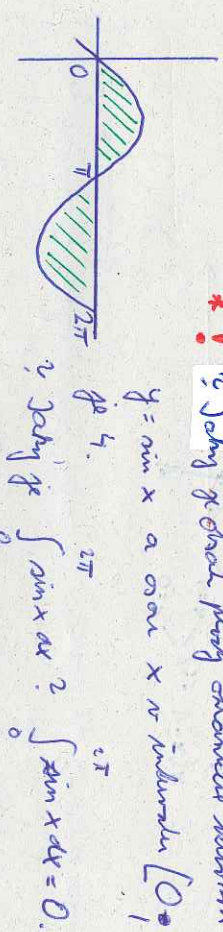 * ! ? Jaký je obsah plochy omezené
y = sin x a osou x v intervalu [0,
je 4.
? Jaký je ∫₀^{2π} sin x dx? ∫₀^{2π} sin x dx = 0.
0
π
2π